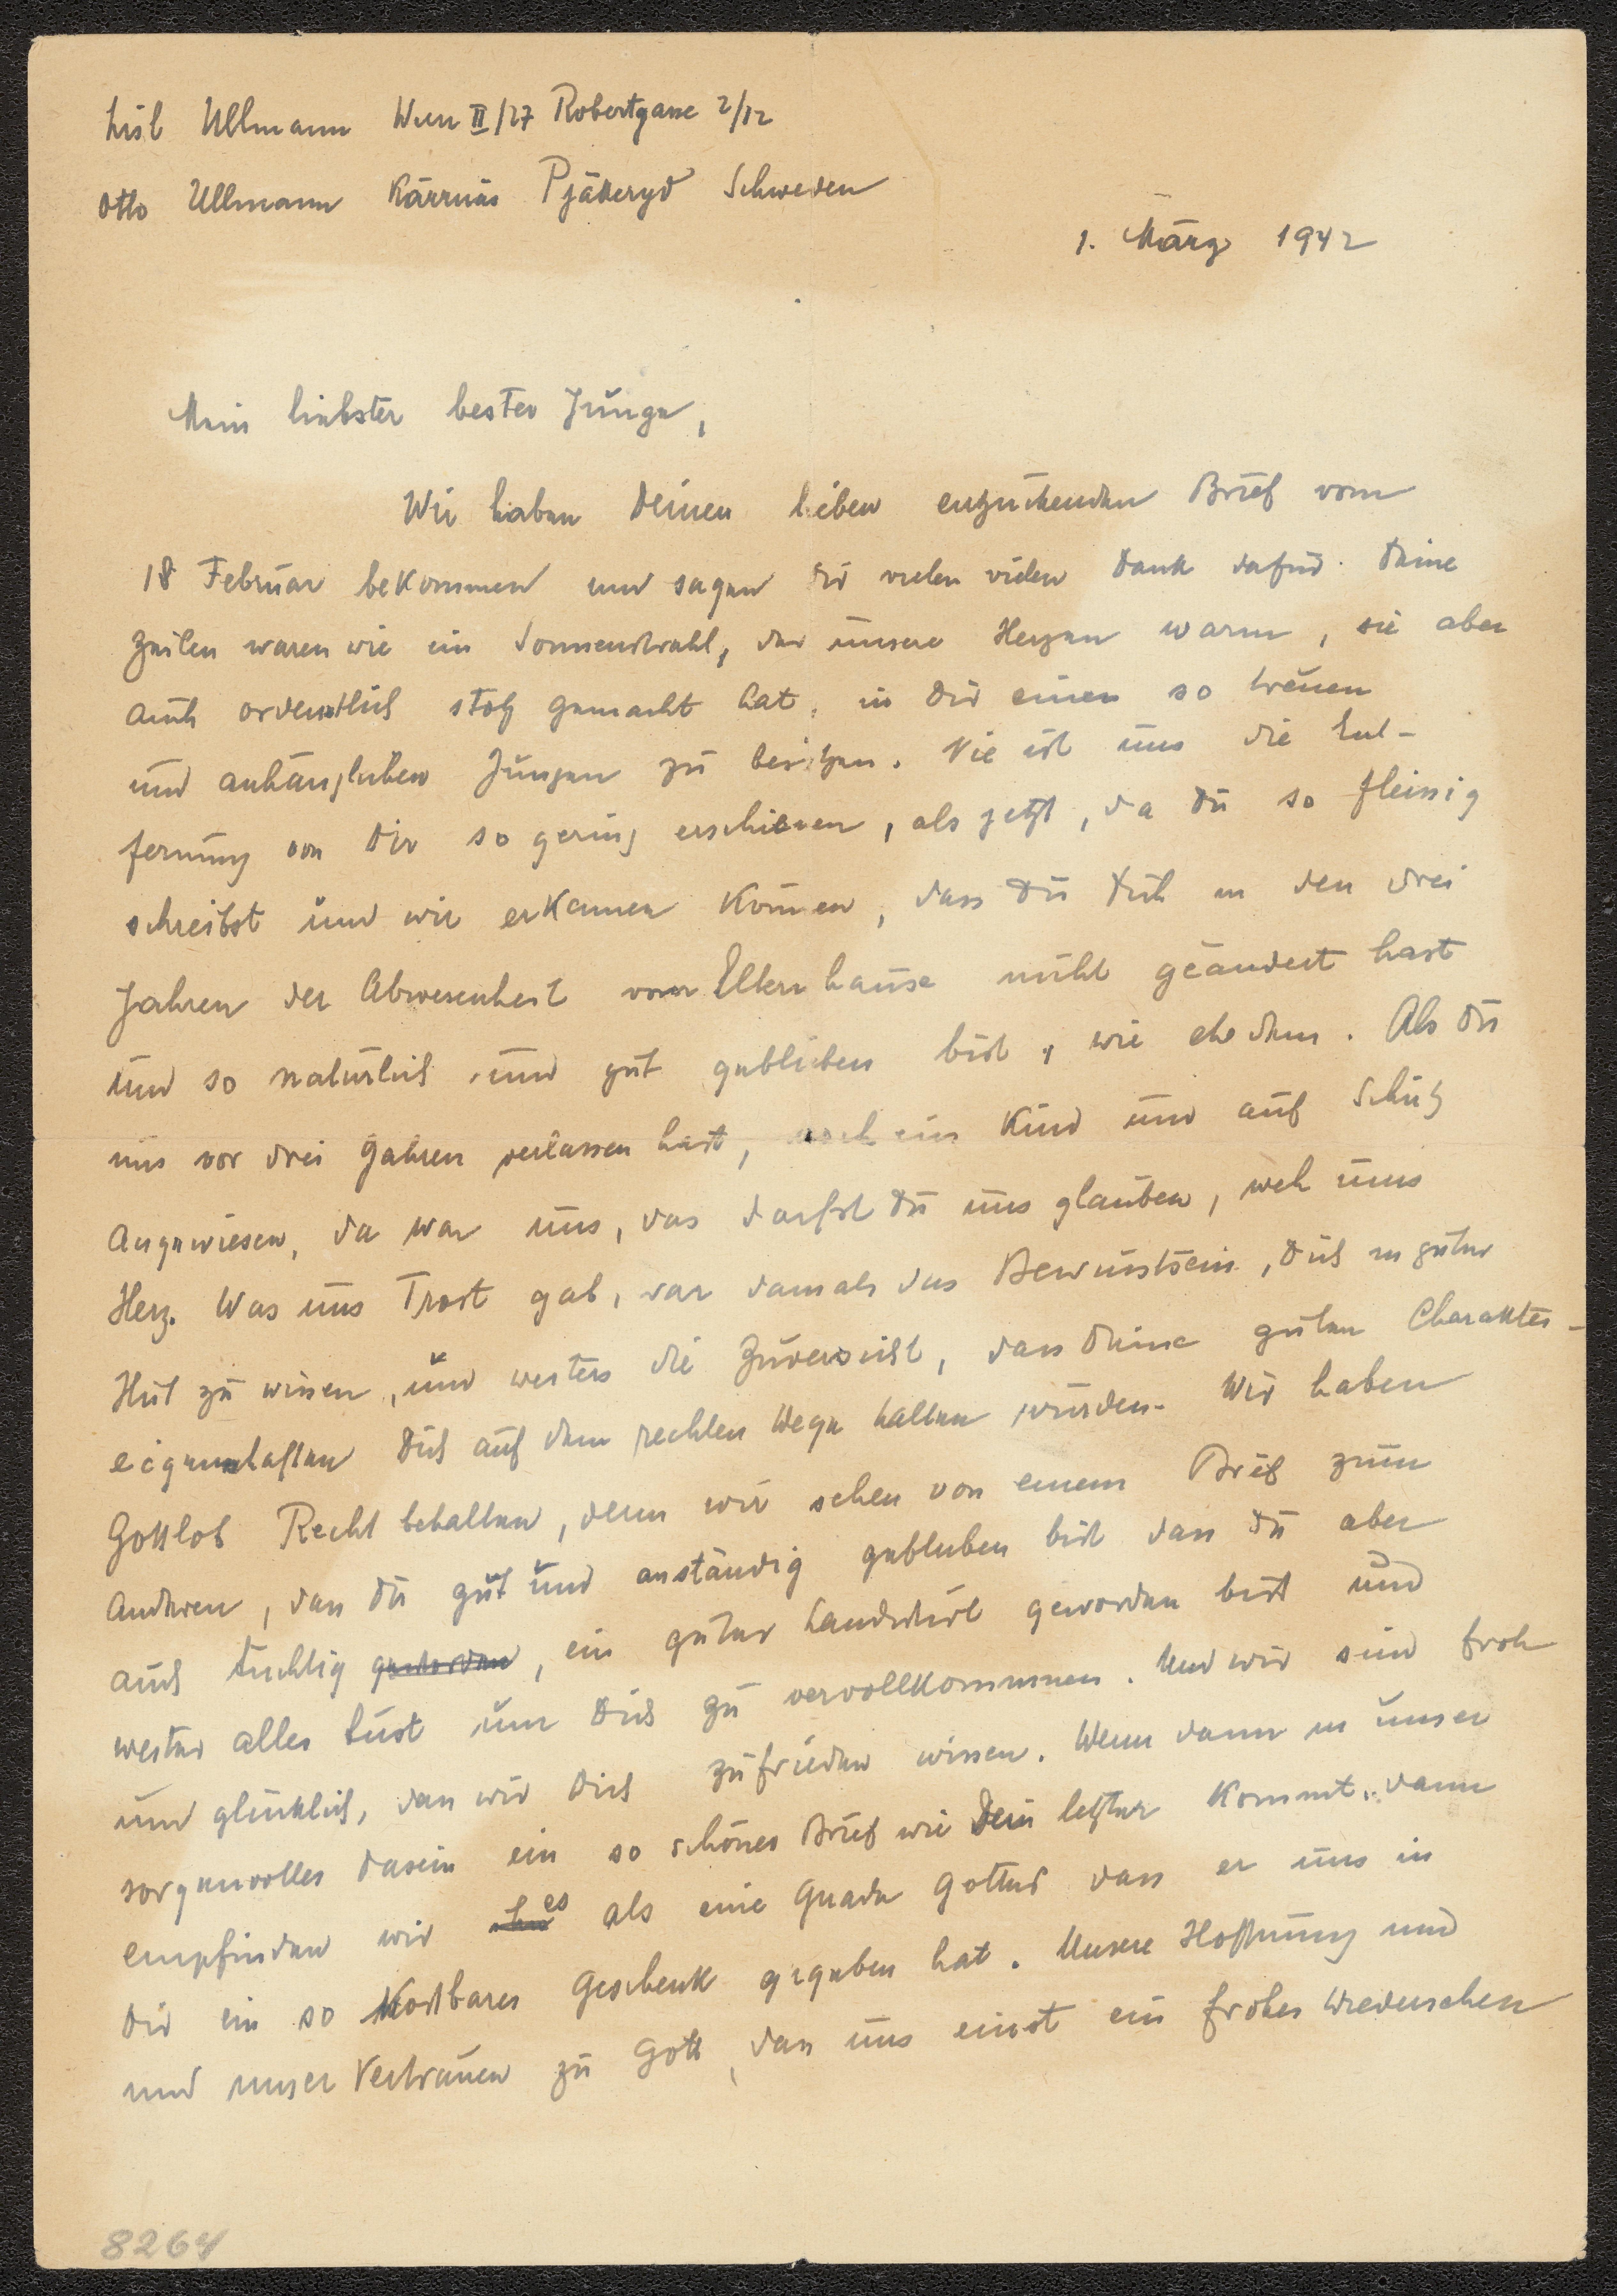 Lisl Ullmann Wien II/27 Robertgasse 2/12
Otto Ullmann Kärrnäs Pjätteryd Schweden
1. März 1942
Mein liebster bester Junge,
Wir haben Deinen lieben entzückenden Brief vom
18 Februar bekommen und sagen Dir vielen vielen Dank dafür. Deine
Zeilen waren wie ein Sonnenstrahl, der unsere Herzen warm, sie aber
auch ordentlich stolz gemacht hat, in Dir einen so treuen
und anhänglichen Jungen zu besitzen. Nie ist uns die Ent-
fernung von Dir so gering erschienen, als jetzt, da Du so fleissig
schreibst und wir erkennen können, dass Du Dich in den drei
Jahren der Abwesenheit vom Elternhause nicht geändert hast
und so natürlich und gut geblieben bist, wie ehedem. Als Du
uns vor drei Jahren verlassen hast, noch ein Kind und auf Schutz
angewiesen, da war uns, das darfst Du uns glauben, weh ums
Herz. Was uns Trost gab, war damals das Bewusstsein, Dich in guter
Hut zu wissen, und weiters die Zuversicht, dass Deine guten Charakter-
eigenschaften Dich auf dem rechten Wege halten würden. Wir haben
Gottlob Recht behalten, denn wir sehen von einem Brief zum
anderen, dass Du gut und anständig geblieben bist dass Du aber
auch tüchtig geworden, ein guter Landwirt geworden bist und
weiter alles tust um Dich zu vervollkommnen. Und wir sind froh
und glücklich, dass wir Dich zufrieden wissen. Wenn dann in unser
sorgenvolles Dasein ein so schöner Brief wie Dein letzter kommt, dann
empfinden wir es als eine Gnade Gottes dass er uns in
Dir ein so kostbares Geschenk gegeben hat. Unsere Hoffnung und
und unser Vertrauen zu Gott, dass uns einst ein frohes Wiedersehen
8264